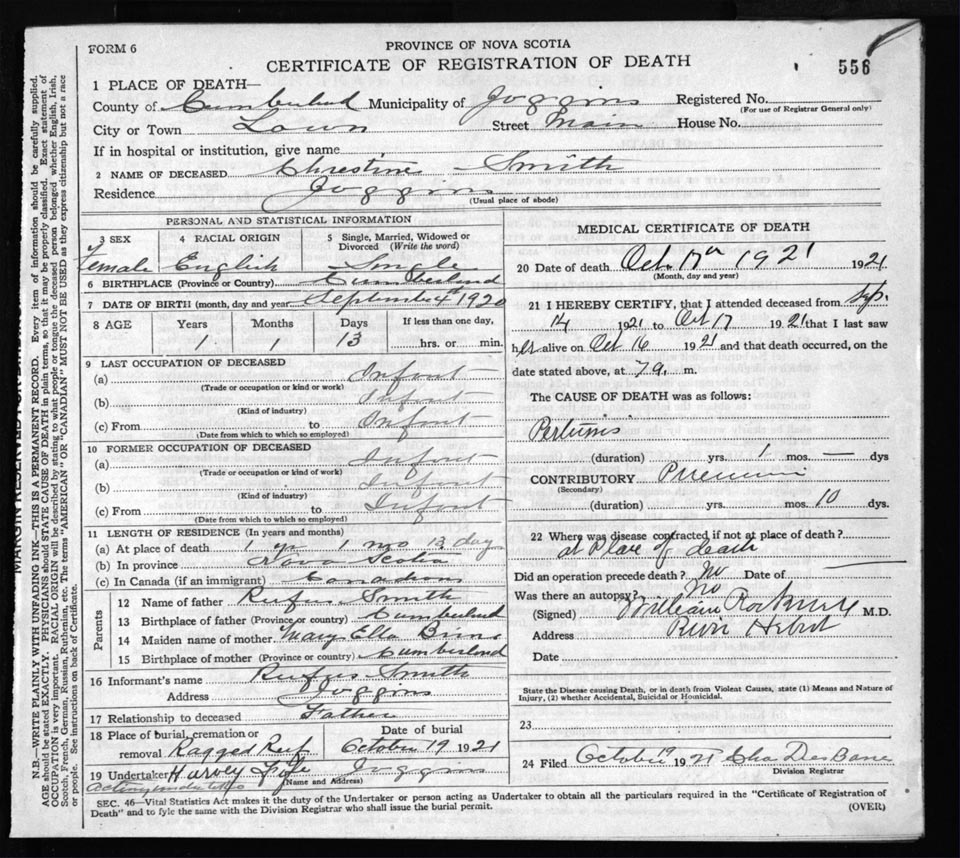 FORM 6
PROVINCE OF NOVA SCOTIA
CERTIFICATE OF REGISTRATION OF DEATH
556
1 PLACE OF DEATH—
County of Cumberland Municipality of Joggins Registered No.
(For use of Registrar General only)
City or Town Town Street Main House No.
If in hospital or institution, give name
2 NAME OF DECEASED Chrestine Smith
Residence Joggins
(Usual place of abode)
PERSONAL AND STATISTICAL INFORMATION
3 SEX 4 RACIAL ORIGIN 5 Single, Married, Widowed or Divorced (Write the word)
Female English Single
6 BIRTHPLACE (Province or Country) Cumberland
7 DATE OF BIRTH (month, day and year) September 4 1920
8 AGE Years Months Days If less than one day,
1 1 13 hrs. or min.
9 LAST OCCUPATION OF DECEASED
(a) Infant
(Trade or occupation or kind or work)
(b) Infant
(Kind of industry)
(c) From to Infant
(Date from which to which so employed)
10 FORMER OCCUPATION OF DECEASED
(a) Infant
(Trade or occupation or kind of work)
(b) Infant
(Kind of industry)
(c) From to Infant
(Date from which to which so employed)
11 LENGTH OF RESIDENCE (In years and months)
(a) At place of death 1 yr 1 mo 13 day
(b) In province Nova Scotia
(c) In Canada (if an immigrant) Canadian
Parents
12 Name of father Rufus Smith
13 Birthplace of father (Province or country) Cumberland
14 Maiden name of mother Mary Ella
15 Birthplace of mother (Province or country) Cumberland
16 Informant's name Rufus Smith
Address Joggins
17 Relationship to deceased Father
18 Place of burial, cremation or removal Ragged Reef Date of burial October 19 1921
19 Undertaker Harvey Joggins
(Name and Address)
Acting
MEDICAL CERTIFICATE OF DEATH
20 Date of death Oct 17th 1921 1921
(Month, day and year)
21 I HEREBY CERTIFY, that I attended deceased from Sep.
14 1921 to Oct 17 1921 that I last saw
her alive on Oct 16 1921 and that death occurred, on the
date stated above, at 7 a. m.
The CAUSE OF DEATH was as follows:
(duration) yrs. 1 mos. — dys
CONTRIBUTORY
(Secondary)
(duration) yrs. mos. 10 dys.
22 Where was disease contracted, if not at place of death?
at Place of death
Did an operation precede death? No Date of
Was there an autopsy? No
(Signed) William M.D.
Address River Hebert
Date
State the Disease causing Death, or in death from Violent Causes, state (1) Means and Nature of
Injury, (2) whether Accidental, Suicidal or Homicidal.
23
24 Filed October 19 1921 Cha Des Barre
Division Registrar
SEC. 46—Vital Statistics Act makes it the duty of the Undertaker or person acting as Undertaker to obtain all the particulars required in the "Certificate of Registration of
Death" and to fyle the same with the Division Registrar who shall issue the burial permit.
(OVER)
MARGIN RESERVED FOR
N.B.—WRITE PLAINLY WITH UNFADING INK—THIS IS A PERMANENT RECORD. Every item of information should be carefully supplied.
AGE should be stated EXACTLY. PHYSICIANS should STATE CAUSE OF DEATH in plain terms, so that it may be properly classified. Exact statement of
OCCUPATION is very important. RACIAL ORIGIN will be described by stating to what people or tongue the deceased person belonged whether English, Irish,
Scotch, French, German, Russian, Ruthenian, etc. The terms "AMERICAN" OR "CANADIAN" MUST NOT BE USED as they express citizenship but not a race
or people. See instructions on back of Certificate.